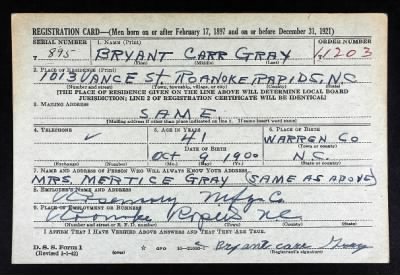 REGISTRATION CARD—(Men born on or after February 17, 1897 and on or before December 31, 1921)
SERIAL NUMBER 1. NAME (Print) ORDER NUMBER
895 BRYANT CARR GRAY 11203
(First) (Middle) (Last)
2. PLACE OF RESIDENCE (Print)
VANCE ST. ROANOKE RAPIDS, N.C.
(Number and street) (Town, township, village, or city) (County) (State)
[THE PLACE OF RESIDENCE GIVEN ON THE LINE ABOVE WILL DETERMINE LOCAL BOARD
JURISDICTION; LINE 2 OF REGISTRATION CERTIFICATE WILL BE IDENTICAL]
3. MAILING ADDRESS
SAME
[Mailing address if other than place indicated on line 2. If same insert word same]
4. TELEPHONE 5. AGE IN YEARS 6. PLACE OF BIRTH
41 WARREN CO
DATE OF BIRTH (Town or county)
Oct 9 1900 N.C.
(Exchange) (Number) (Mo.) (Day) (Yr.) (State or country)
7. NAME AND ADDRESS OF PERSON WHO WILL ALWAYS KNOW YOUR ADDRESS
MRS. MERTICE GRAY (SAME AS ABOVE)
8. EMPLOYER'S NAME AND ADDRESS
Rosemary Mfg. Co.
9. PLACE OF EMPLOYMENT OR BUSINESS
Roanoke Rapids N.C.
(Number and street or R. F. D. number) (Town) (County) (State)
I AFFIRM THAT I HAVE VERIFIED ABOVE ANSWERS AND THAT THEY ARE TRUE.
D. S. S. Form 1 GPO 16—21630-1 Bryant Carr Gray
(Revised 1-1-42) (over) (Registrant's signature)